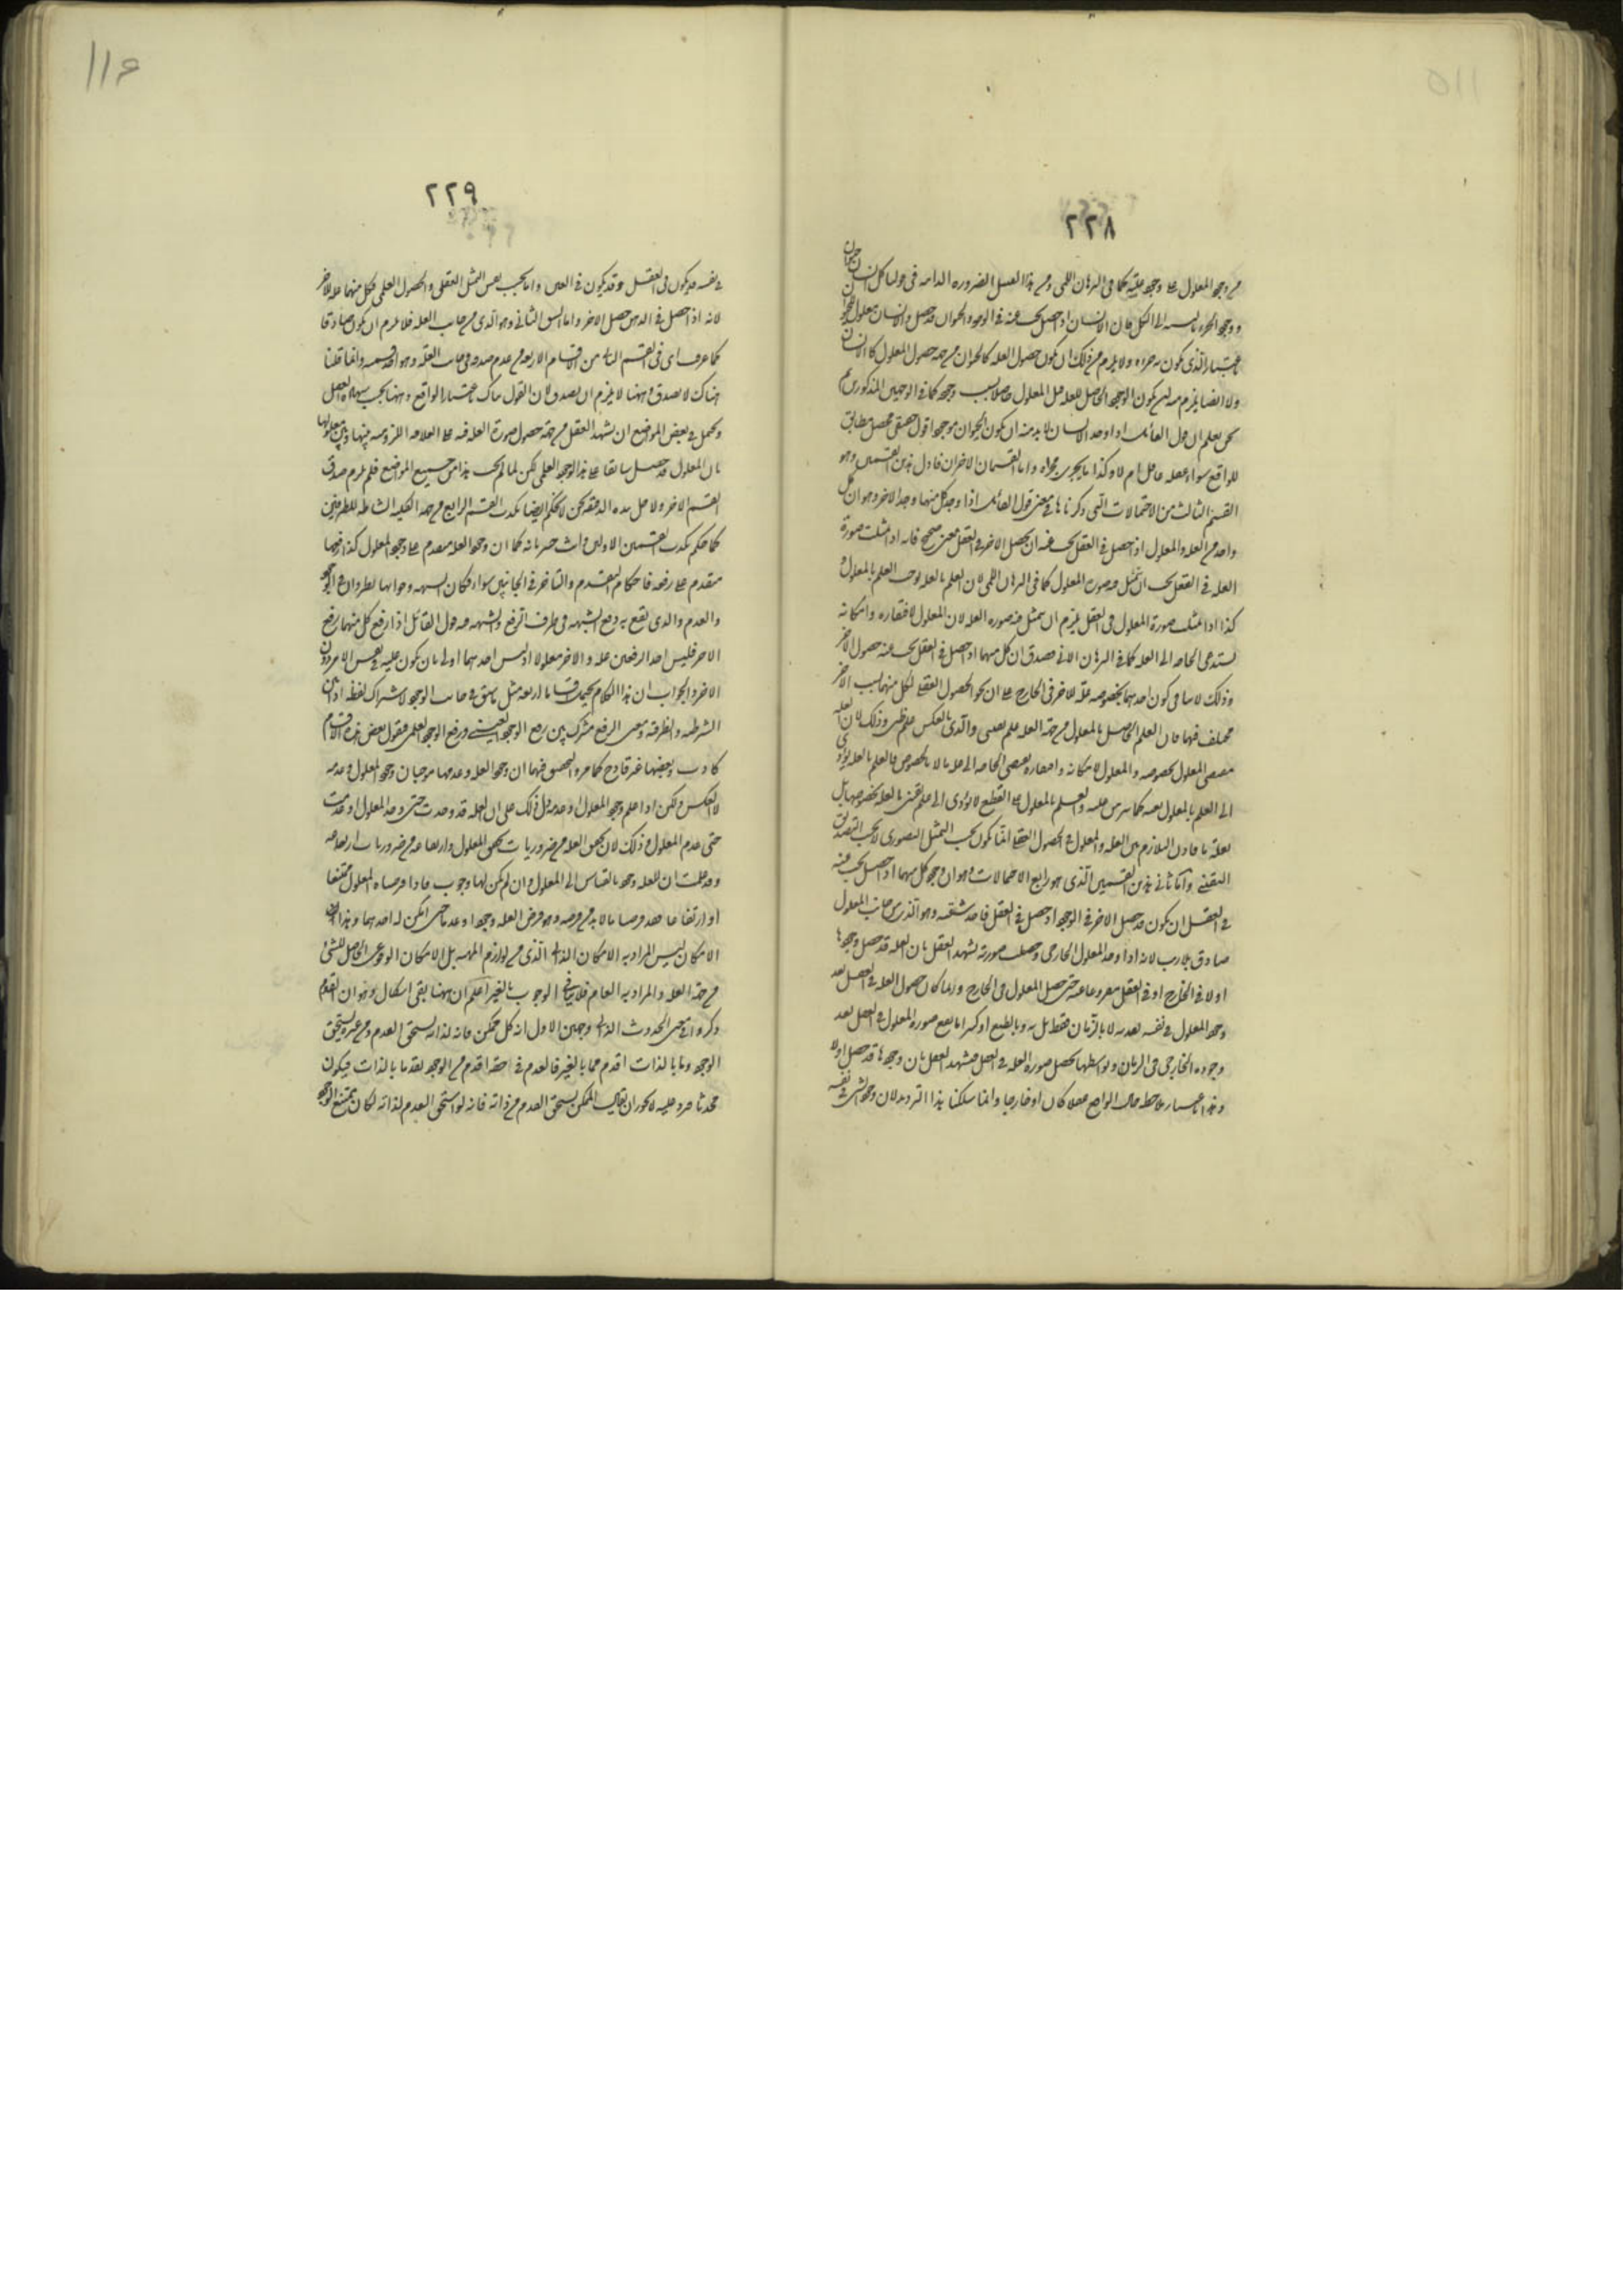 ٢٢٨
من وجود المعلول على وجود علته كما في البرهان اللمي ومن هذا القبيل الضرورة الذاتية في قولنا كل انسان حيوان
ووجود الجزء بالنسبة الى الكل فان الانسان اذا حصل يجب عنه في الوجود الحيوان قد حصل والانسان معلول
الذي يكون جزاءه ولا يلزم من ذلك ان يكون حصول العلة كالحيوان من جهة حصول المعلول كالانسان
ولا ايضا يلزم منه ان يكون الوجود الحاصل للعلة قبل المعلول حاصلا بسبب وجوده كما في الوجهين المذكورين
يعلم ان قول القائل اذا وجد الانسان لا بد منه ان يكون الحيوان موجودا قول حقيقي محصل مطابق
للواقع سواء عقله عاقل ام لا وكذا ما يجري مجراه واما القسمان الاخران فاول هذين القسمين وهو
القسم الثالث من الاحتمالات التي ذكرناها في معنى قول القائل اذا وجد كل منهما وجد الاخر وهو ان كل
واحد من العلة والمعلول اذا حصل في العقل يجب عنه ان يحصل الاخر في العقل معنى صحيح فانه اذا تمثلت صورة
العلة في العقل يجب ان يتمثل صورة المعلول كما في البرهان اللمي لان العلم بالعلة يوجب العلم بالمعلول و
كذا اذا تمثلت صورة المعلول في العقل يلزم ان يتمثل فيه صورة العلة لان المعلول لافتقاره وامكانه
يستدعي الحاجة الى العلة كما في البرهان الاني فصدق ان كل منهما اذا حصل في العقل يجب عنه حصول الاخر
وذلك لا ينافي كون احدهما بخصوصه علة للاخر في الخارج على ان نحو الحصول العقلي لكل منهما بسبب الاخر
مختلف فيهما فان العلم الحاصل بالمعلول من جهة العلة علم يقيني والذي بالعكس علم ظني وذلك لان العلة
مقتضى المعلول بخصوصه والمعلول لامكانه وافتقاره يقتضي الحاجة الى علة ما لا بالخصوص فالعلم بالعلة يؤدي
الى العلم بالمعلول بعينه كما سبرهن عليه والعلم بالمعلول على القطع لا يؤدي الى علم يقيني بالعلة بخصوصها بل
بعلة ما فاذن التلازم بين العلة والمعلول في الحصول العقلي انما يكون بحسب التمثل التصوري لا بحسب التصديق
اليقيني واما ثاني هذين القسمين الذي هو رابع الاحتمالات وهو ان وجود كل منهما اذا حصل يجب عنه
في العقل ان يكون قد حصل الاخر في الوجود او حصل في العقل فاحد شقيه وهو الذي من جانب المعلول
صادق بلا ريب لانه اذا وجد المعلول الخارجي وحصلت صورته يشهد العقل بان العلة قد حصل وجودها
اولا في الخارج او في العقل مفروغا عنه حتى حصل المعلول في الخارج وربما كان حصول العلة في العقل بعد
وجود المعلول في نفسه بعدية لا بالزمان فقط بل به وبالطبع او كثيرا ما يقع صورة المعلول في العقل بعد
وجوده الخارجي في الزمان وبواسطتها يحصل صورة العلة في العقل فيشهد العقل بان وجودها قد حصل اولا
وهذا باعتبار ملاحظة حال الواقع عقلا كان او خارجا وانما سلكنا هذا الترديد لان وجود الشيء في نفسه
٢٢٩
في نفسه قد يكون في العقل وقد يكون في العين واما بحسب نفس التمثل العقلي والحصول العلمي فكل منهما علة للاخر
لانه اذا حصل في الذهن حصل الاخر واما الشق الثاني وهو الذي من جانب العلة فلا يلزم ان يكون صادقا
كما عرفت اي في القسم الثاني من الاقسام الاربعة من عدم صدقه في جانب العلة وهو احد قسميه وانما قلنا
هناك لا يصدق وههنا لا يلزم ان يصدق لان القول هناك باعتبار الواقع وههنا بحسب شهادة العقل
ويحتمل في بعض المواضع ان يشهد العقل من جهة حصول صورة العلة فيه على العلاقة اللزومية بينها وبين معلولها
بان المعلول قد حصل سابقا على هذا الوجود العلمي لكن لما لم يجب هذا في جميع المواضع فلم يلزم صدق
القسم الاخر ولاجل هذه الدقيقة لم يحكم ايضا بكذب القسم الرابع من جهة الكلية الشاملة للطرفين
كما حكم بكذب القسمين الاولين وكما ان وجود العلة متقدم على وجود المعلول كذا رفعها
متقدم على رفعه فاحكام التقدم والتاخر في الجانبين سواء فكان الشبهة وجوابها يطردان في الوجود
والعدم والذي يقع به دفع الشبهة في طرف الرفع والشبهة هو قول القائل اذا رفع كل منهما رفع
الاخر فليس احد الرفعين علة والاخر معلولا اذ ليس احدهما اولى بان يكون علية في نفس الامر دون
الاخر والجواب ان هذا الكلام يحتمل اقساما اربعة مثل ما سبق في جانب الوجود لاشتراك لفظة اذا بين
الشرطية والظرفية ومعنى الرفع مشترك بين رفع الوجود العيني ورفع الوجود العلمي فنقول بعض هذه الاقسام
كاذب وبعضها غير قادح كما مر والتحقيق فيها ان وجود العلة وعدمها موجبان وجود المعلول وعدمه
لا بالعكس ولكن اذا علم وجود المعلول او عدمه دل ذلك على ان العلة قد وجدت حتى وجد المعلول او عدمت
حتى عدم المعلول وذلك لان تحقق العلة من ضروريات تحقق المعلول وارتفاعه من ضروريات ارتفاعه
وقد علمت ان للعلة وجوبا بالقياس الى المعلول وان لم يكن لها وجوب فاذا فرضنا المعلول متحققا
او ارتفاعا فقد فرضنا ما لا بد من فرضه وهو فرض العلة وجودا وعدما حتى امكن له احدهما وهذا
الامكان ليس المراد به الامكان الذاتي الذي من لوازم الماهية بل الامكان الوقوعي الحاصل للشيء
من جهة العلة والمراد به العام فلا ينافي الوجوب بالغير اعلم ان ههنا بقي اشكال وهو ان القوم
ذكروا في معنى الحدوث الذاتي وجهين الاول ان كل ممكن فانه لذاته يستحق العدم ومن غيره يستحق
الوجود وما بالذات اقدم مما بالغير فالعدم في حقه اقدم من الوجود تقدما بالذات فيكون
محدثا ورد عليه لا يجوز ان يقال الممكن يستحق العدم من ذاته فانه لو استحق العدم لذاته لكان ممتنع الوجود